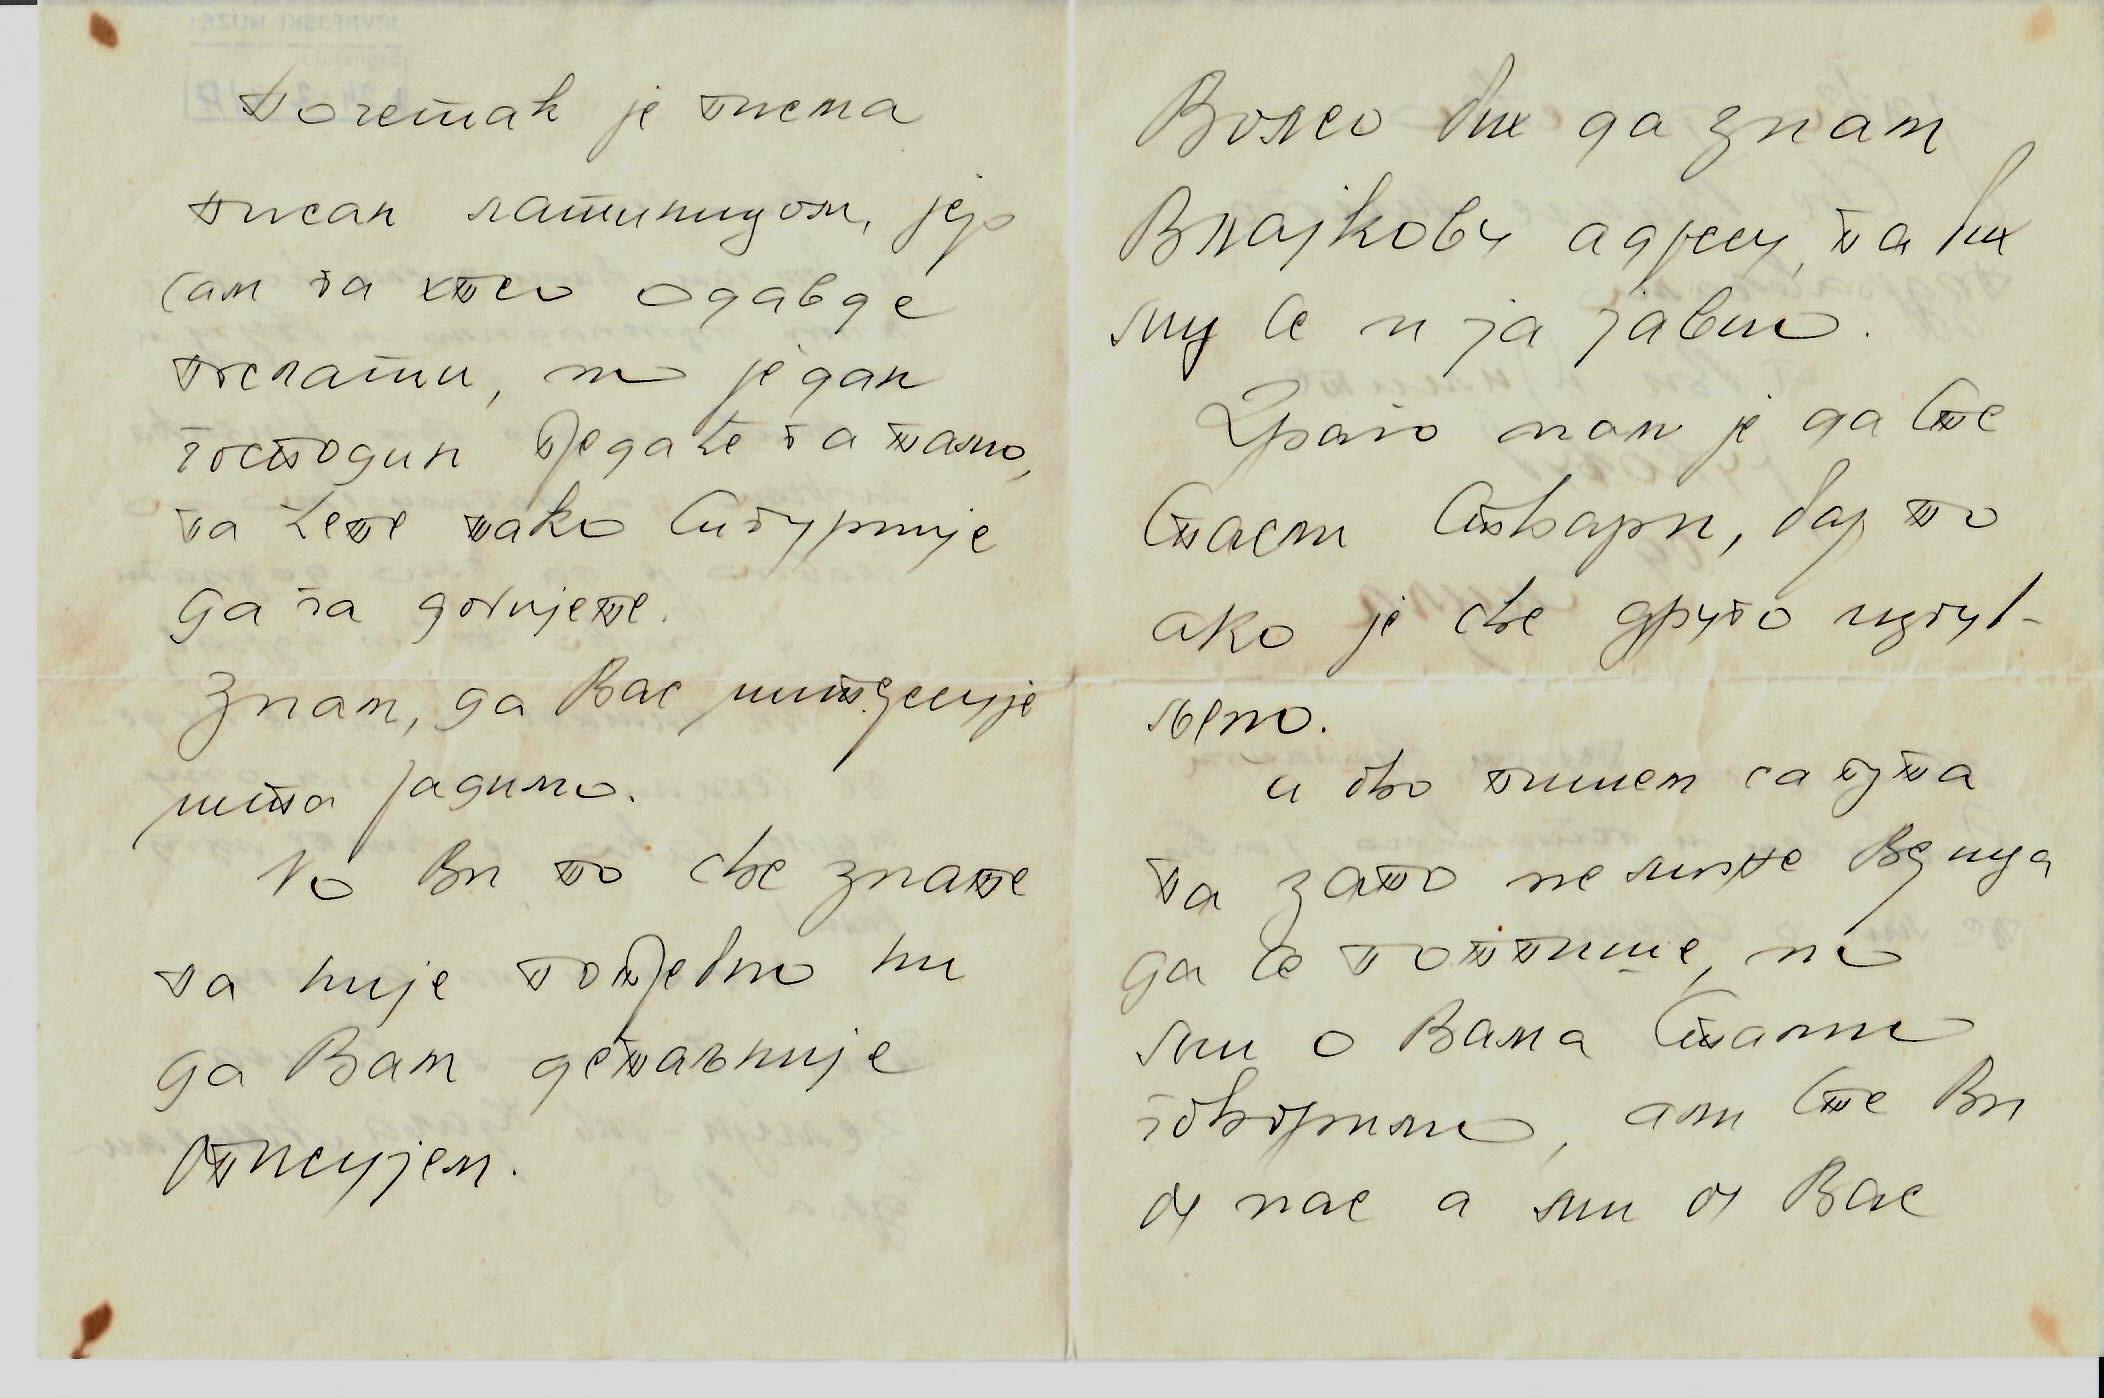 Почетак је писма
писан латиницом, јер
сам га хтео одавде
послати, но један
господин предаће га тамо,
па ћете тако сигурније
да га добијете.
Знам, да Вас интересује
шта радимо.
Но Ви то све знате
па није потребно ни
да Вам детаљније
описујем.
Волео бих да знам
Влајкову адресу, па бих
му се и ја јавио.
Драго нам је да сте
спасли ствари, бар то
ако је све друго изгуб-
љено.
И ово пишем са пута
па зато не може
да се потпише, но
ми о Вама стално
говоримо, али сте Ви
од нас а ми од Вас
JEVREJSKI MUZEJ